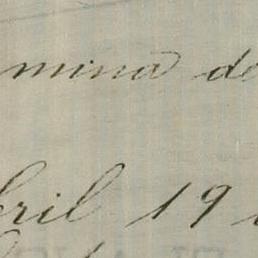 mina de
bril 19